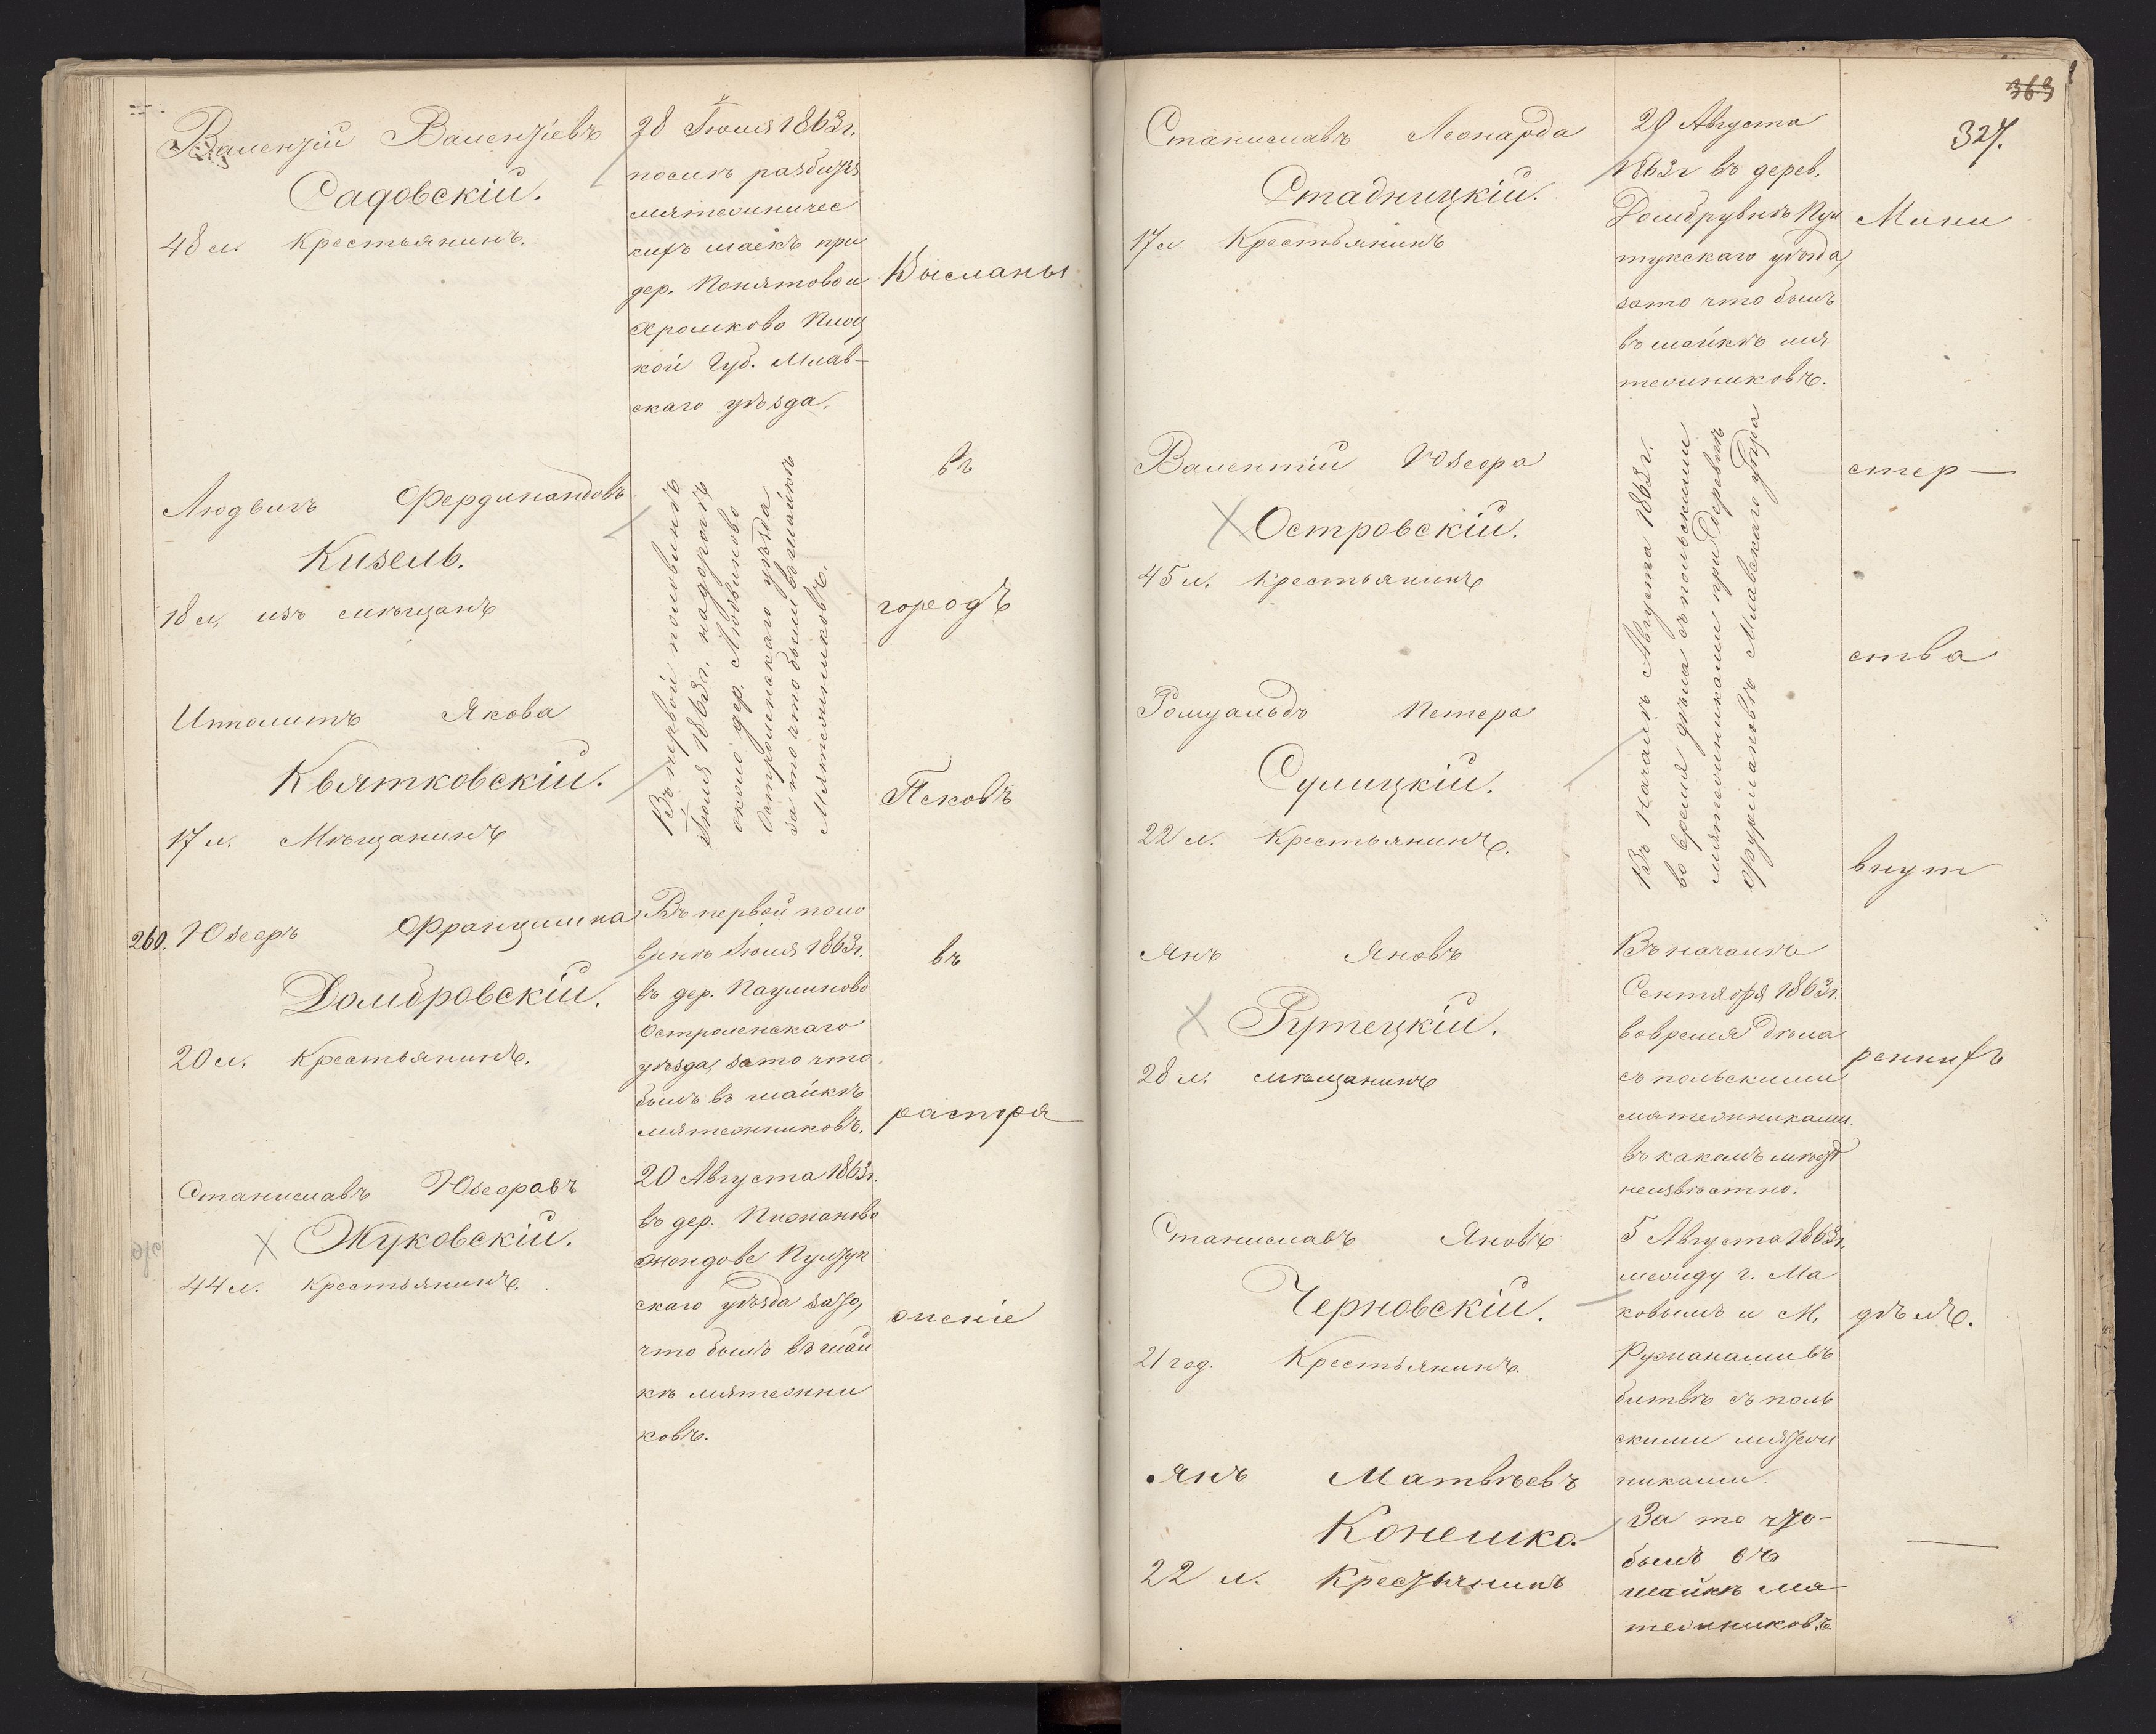 Валентій Валентіевъ
Садовскій.
48 л. Крестьянинъ.
28 Іюля 1863 г.
послѣ разбитія
мятежничес
кихъ шаекъ при
дер. Понятово и
Хромково Плоц
кой Губ. Млав-
скаго уѣзда.
Высланы
Людвигъ Фердинандовъ
Кизель.
18 л. изъ мѣщанъ
въ
городъ
Ипполитъ Якова
Квятковскій.
17 л. Мѣщанинъ
Въ первой половинѣ
Іюля 1863 г. надорогѣ
около дер. Людвиново
Остроленскаго уѣзда
за то что были въ шайкѣ
Мятежниковъ.
Псковъ
260. Юзефъ Францишка
Домбровскій.
20 л. Крестьянинъ.
Въ первой поло
винѣ Іюля 1863 г.
въ дер. Паулиново
Остроленскаго
уѣзда, зато что
былъ въ шайкѣ
мятежниковъ.
въ
распоря
Станиславъ Юзефовъ
Жуковскій.
44 л. Крестьянинъ.
20 Августа 1863 г.
въ дер.
Пултук
скаго уѣзда зато,
что былъ въ шай
кѣ мятежни
ковъ.
женіе
363
327.
Станиславъ Леонарда
Стадницкій.
17 л. Крестьянинъ
29 Августа
1863 г въ дерев.
Домбрувкѣ Пул
тукскаго уѣзда,
зато что былъ
въ шайкѣ мя
тежниковъ.
Мини
Валентій Юзефа
Островскій.
45 л. Крестьянинъ
стер-
ства
Ромуальдъ Петера
Сулицкій.
22 л. Крестьянинъ.
Въ началѣ Августа 1863 г.
во время дѣла съ польскими
мятежниками при Деревнѣ
Фурмановѣ Млавскаго уѣзда
внут
Янъ Яновъ
Рутецкій.
28 л. мѣщанинъ
Въ началѣ
Сентября 1863 г.
вовремя дѣла
съ польскими
мятежниками.
въ какомъ мѣстѣ
неизвѣстно.
реннихъ
Станиславъ Яновъ
Черновскій.
21 год. Крестьянинъ.
5 Августа 1863 г.
между г. Ма
ковымъ и М.
Ружанами въ
битвѣ съ поль
скими мятеж
никами.
дѣлъ.
Янъ Матвѣевъ
Конешка
22 л. Крестьянинъ
За то что-
былъ въ
шайкѣ мя
тежниковъ.